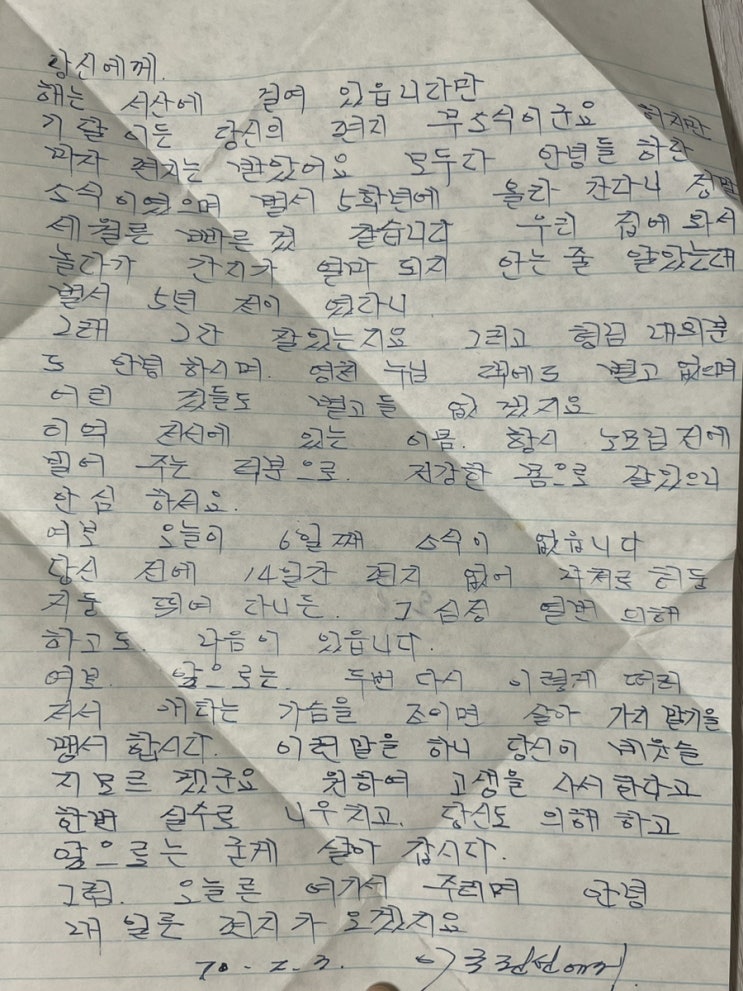 당신에게.
해는 서산에 걸여 있읍니다만
기달이든 당신의 편지 무소식이군요 하지만
마자 편지는 받았어요 모두다 안녕들 하단
소식이였으며 벌서 5학년에 올라 간다니 정말
세월른 빠른 것 같습니다 우리 집에 와서
놀다가 간지가 얼마 되지 안는줄 알았는대
벌서 5년 전이 였다니
그래 그간 잘있는지요 그리고 형님 내외분
도 안녕 하시며. 누님 댁에도 별고 없으며
어린 것들도 별고들 없겠지요
이역 전선에 있는 이몸. 항시 노모님전에
빌어 주는 덕분으로. 건강한 몸으로 잘있으니
안심 하서요.
여보 오늘이 6일째 소식이 없읍니다
당신 전에 14일간 편지 없어 허둥
지둥 뛰여 다니든. 그 심정 열번 의해
하고도. 남음이 있읍니다.
여보. 앞으로는. 두번 다시 이렇게 떠러
저서 애타는 가슴을 조이면 살아 가지 말기을
맹서 합시다. 이런말을 하니 당신이 비웃슬
지 모르겠군요 원하여 고생을 사서 한다고
한번 실수로 니우치고. 당신도 의해 하고
앞으로는 굳게 살아 갑시다.
그럼. 오늘른 여기서 주리며 안녕
내일른 편지가 오겠지요
70. 2. 3. 전선에서